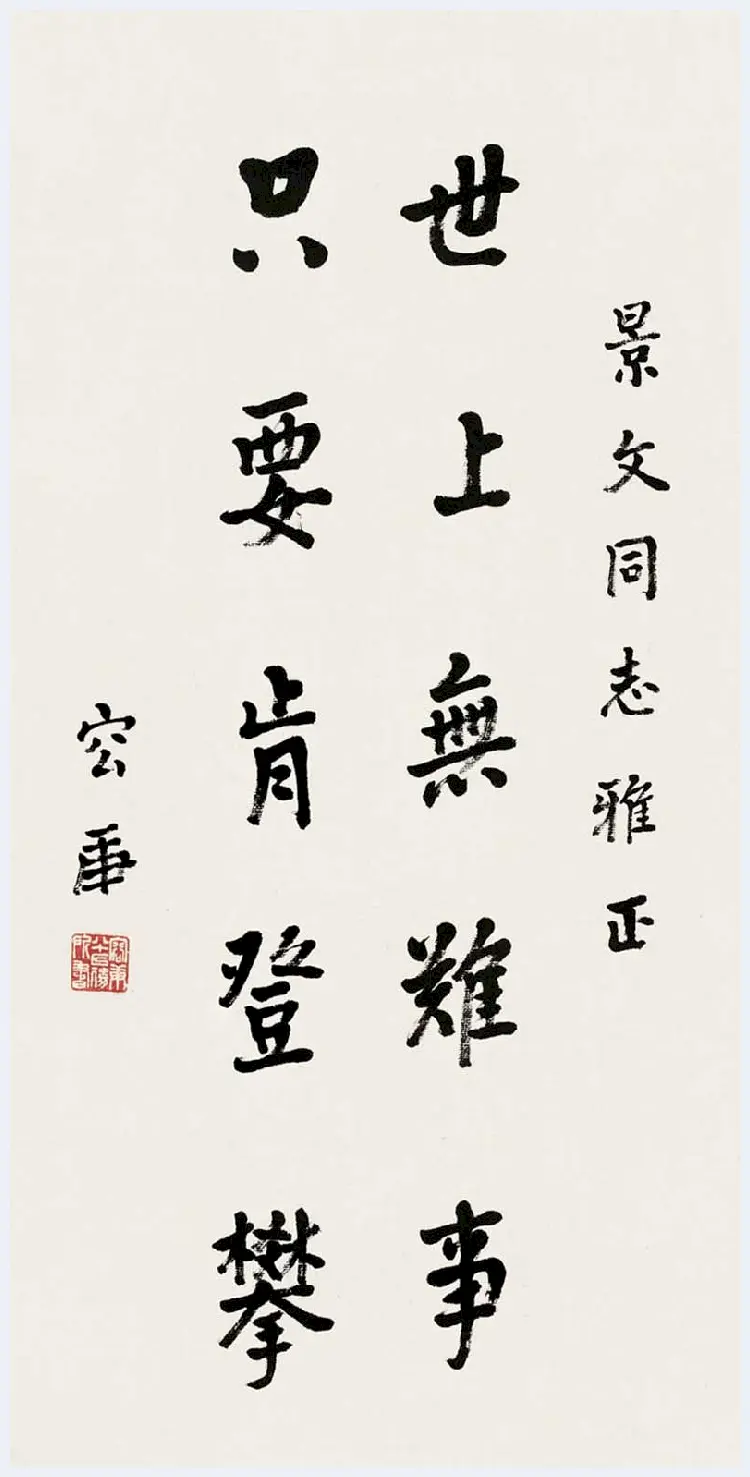 景文同志雅正
世上無難事
只要肯登攀
容庚